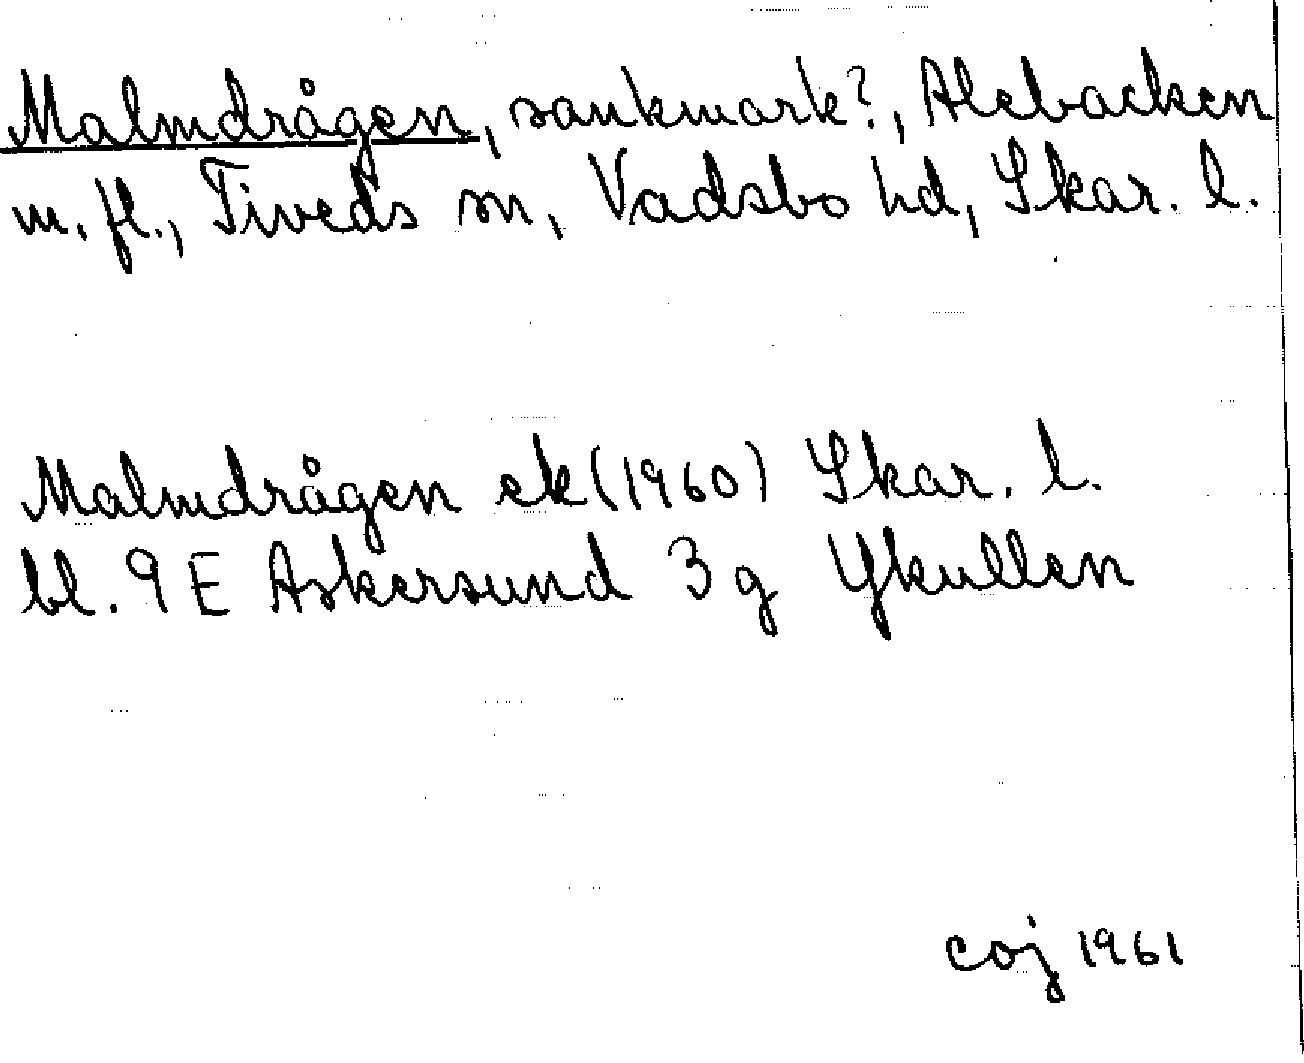 Malmdrågen, sankmark?, Alebacken
m. fl., Tiveds sn, Vadsbo hd, Skar. l.
Malmdrågen ek (1960) Skar. l.
bl. 9 E Askersund 3 g Ykullen
coj 1961